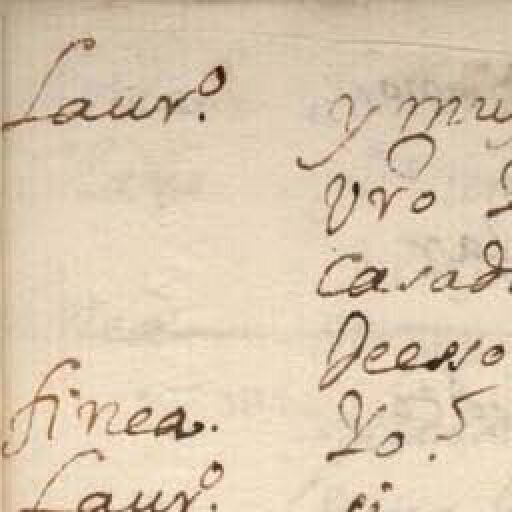 Laur.º y muy
vro
casad
deesso
finea. Yo?
Laur.º si